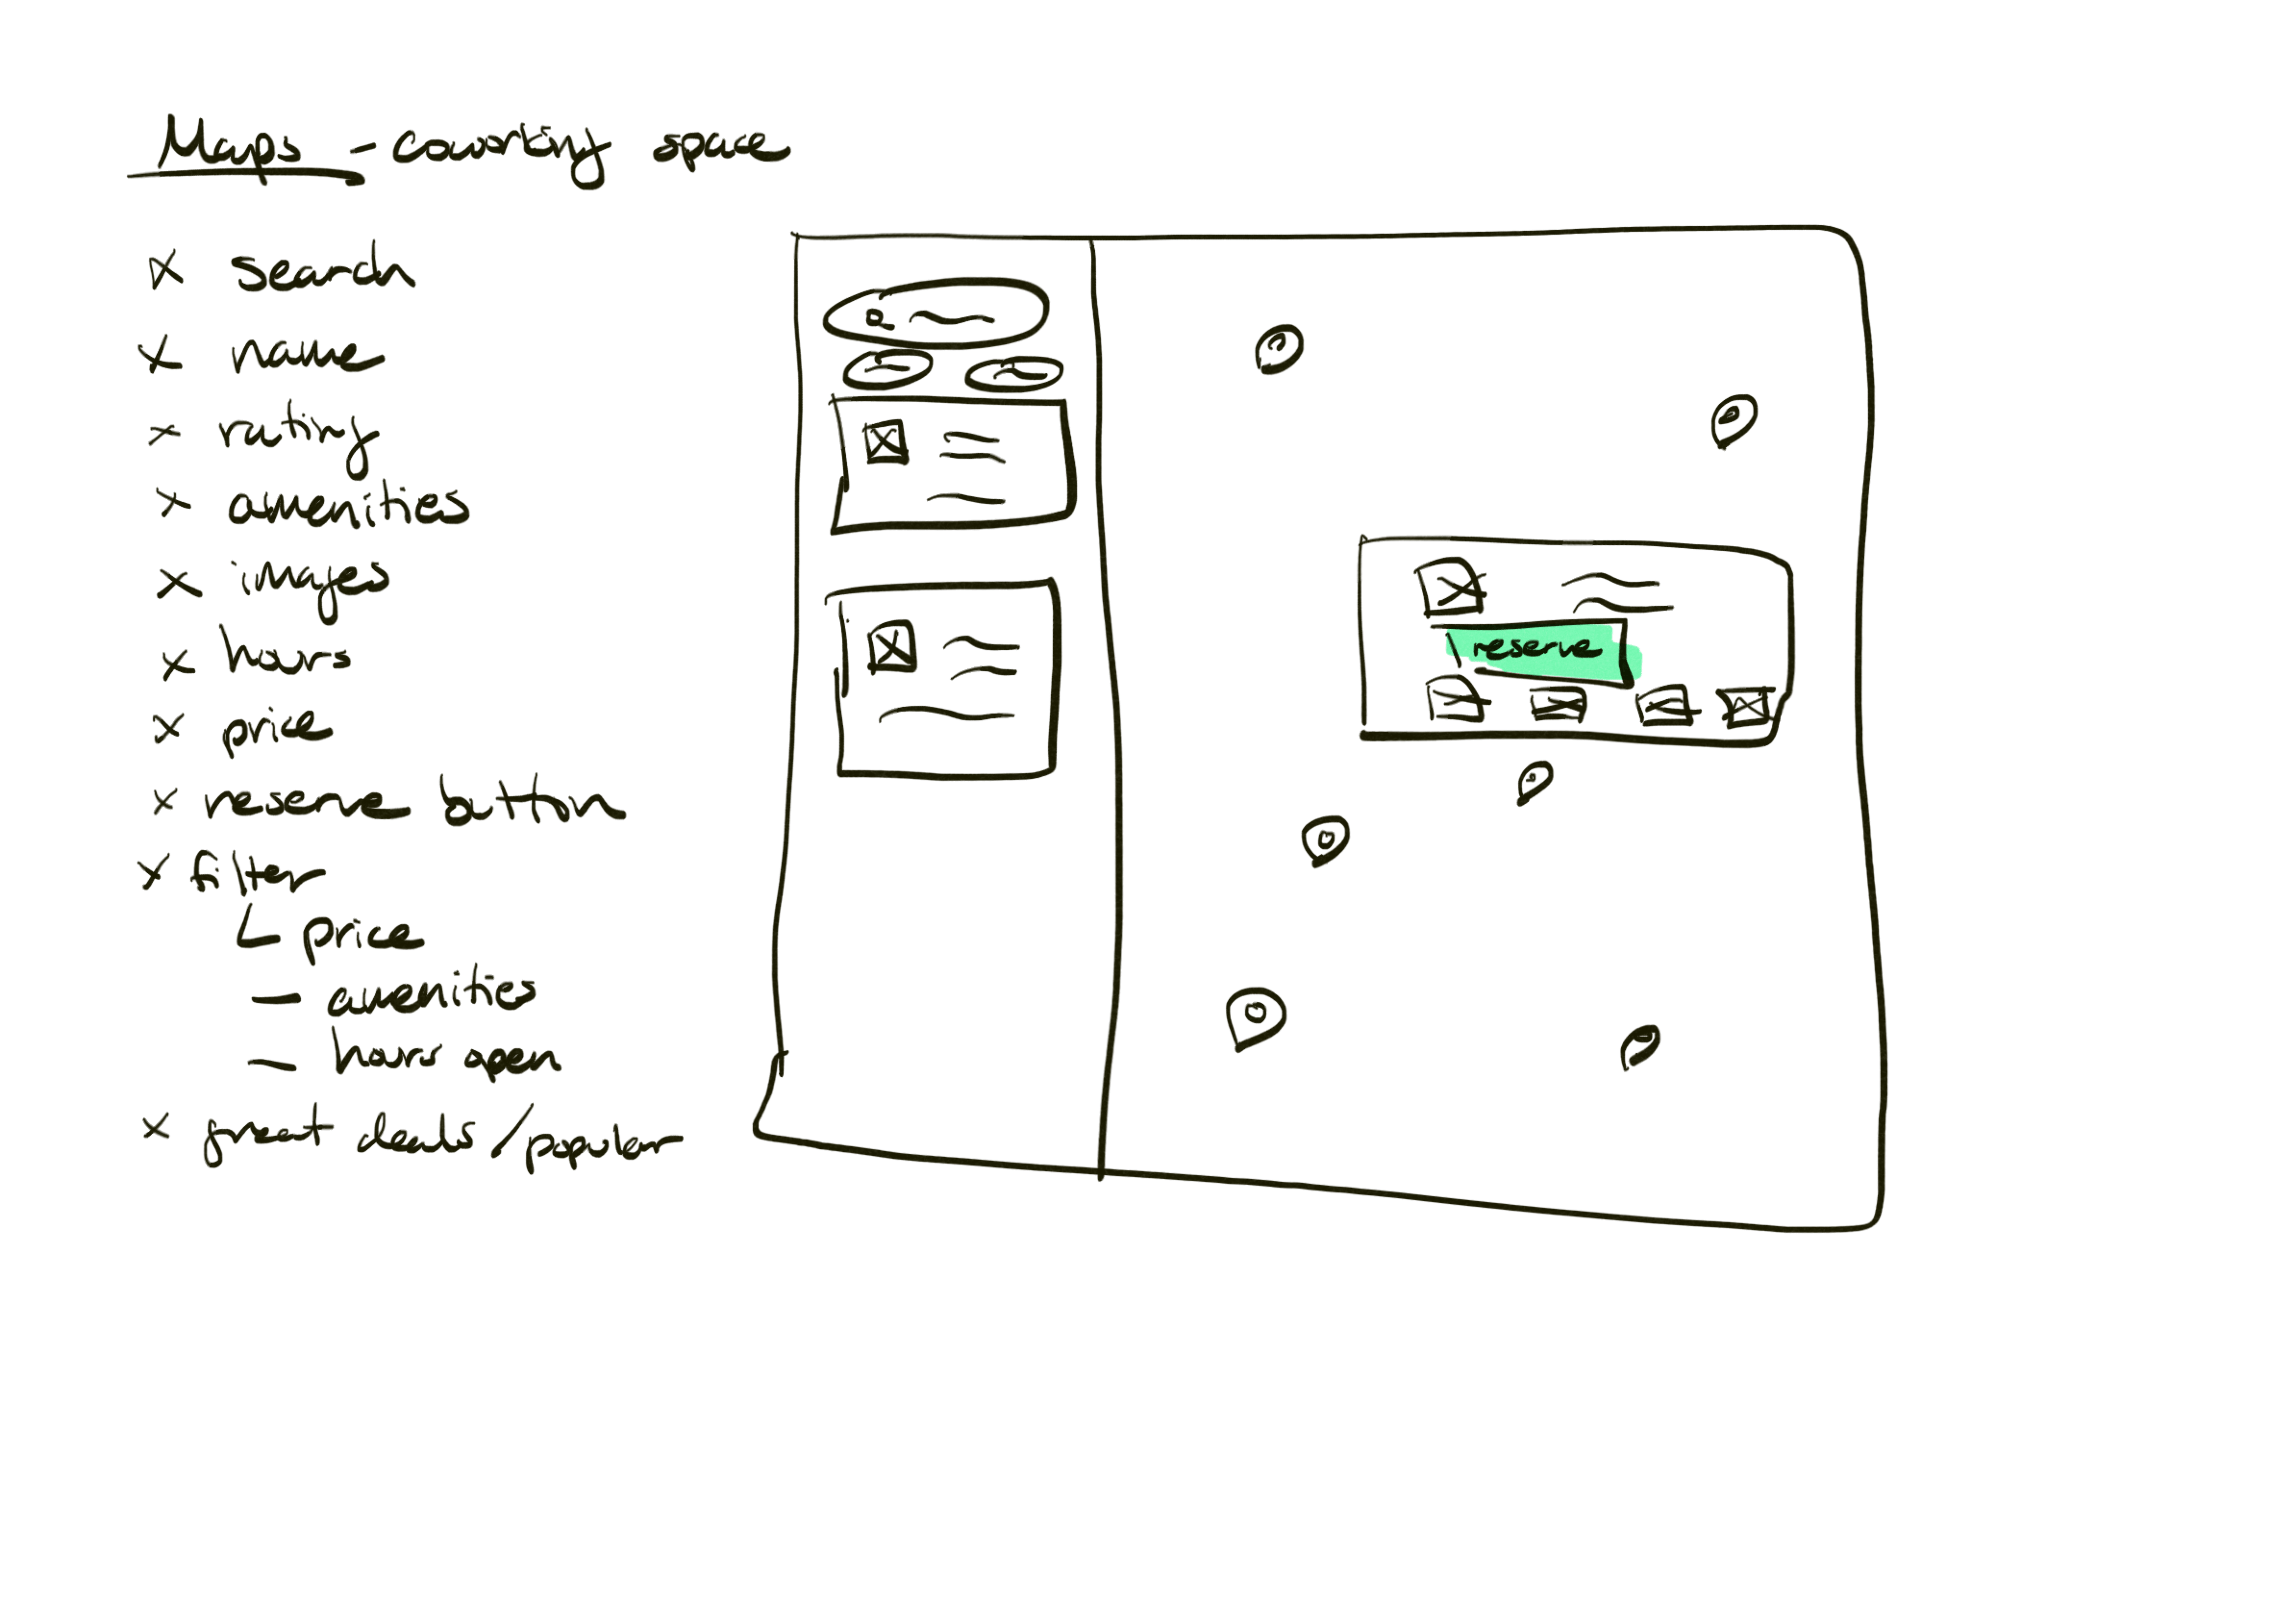 Maps - coworking space
x search
x name
x rating
x amenities
x images
x hours
x price
x reserve button
x filter
└ price
— amenities
— hours open
x great deals/popular
reserve